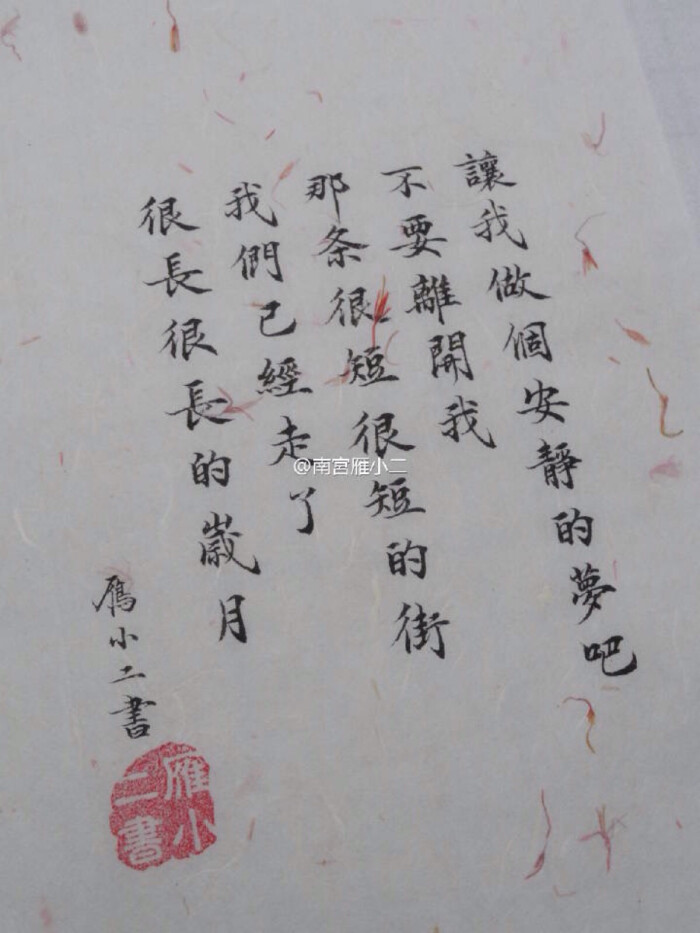 讓我做個安靜的夢吧
不要離開我
那条很短很短的街
我們已經走了
很長很長的歲月
鴈小二書
雁小二書
@南宫雁小二